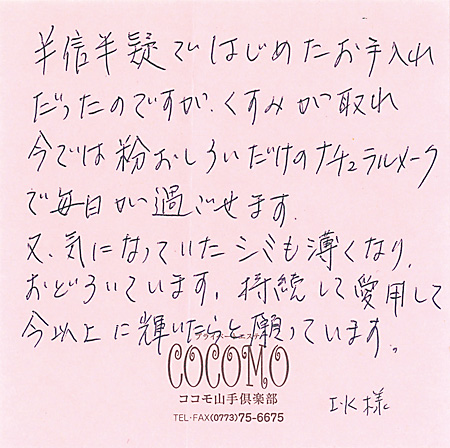 半信半疑ではじめたお手入れ
だったのですが、くすみが取れ
今では粉おしろいだけのナチュラルメーク
で毎日が過ごせます。
又、気になっていたシミも薄くなり、
おどろいています。持続して愛用して
今以上に輝いたらと願っています。
プライベートエステ
COCOMO
ココモ山手倶楽部
TEL・FAX(0773)75-6675
I・K様